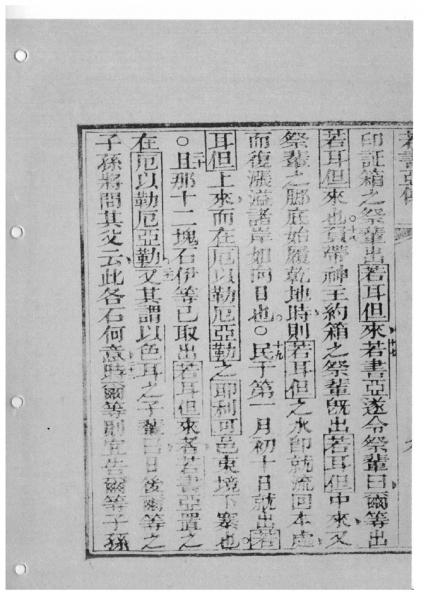 若書亞傳
印証箱之祭輩出若耳但來若書亞遂令祭輩曰爾等出
若耳但來也負帶神王約箱之祭輩旣出若耳但中來又
祭輩之腳底始履乾地時則若耳但之水即就流回本處
而復漲溢諸岸如向日也○民于第一月初十日就出若
耳但上來而在厄以勒厄亞勒之耶利可邑東境下寨也
○且那十二塊石伊等已取出若耳但來者若書亞置之
在厄以勒厄亞勒又其謂以色耳之子輩曰日後爾等之
子孫將問其父云此各石何意時爾等則宜告爾等子孫